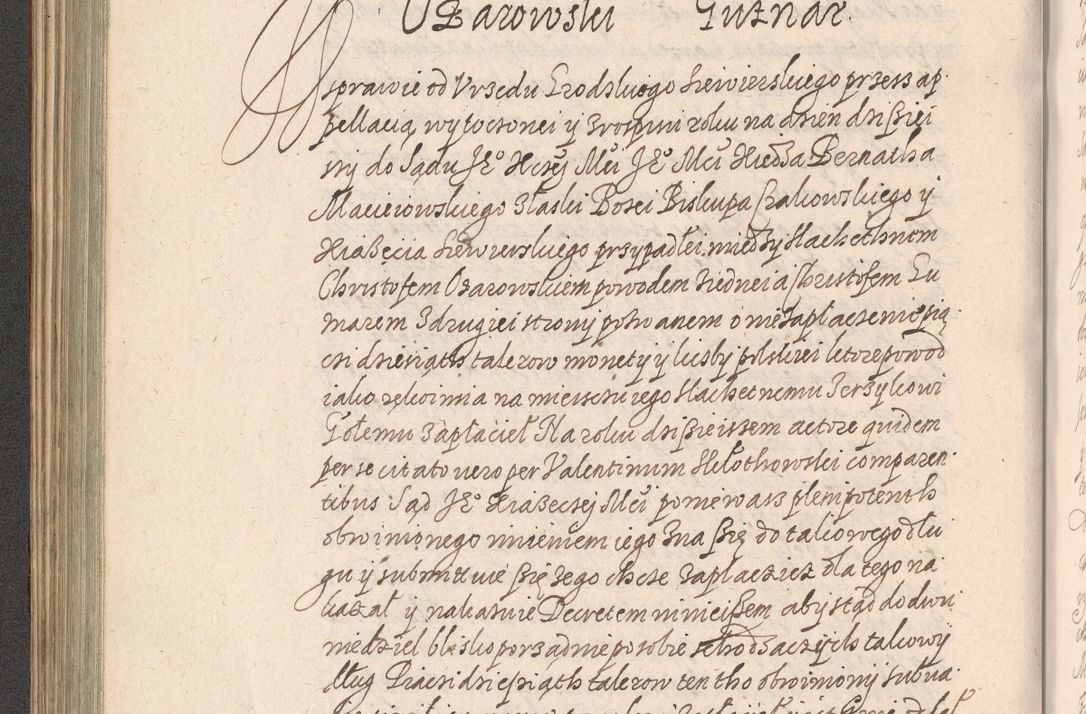 Ozarowski Gutznar.
W sprawie od Vrzedu Grodzkiego Siewierskiego przess ap
pellacią, wytoczonei y z rospisu roku na dzien dzisiei
szy do Sądu Je° Xczej Mci Je° Mci Xiedza Bernatha
Macieiowskiego z łaski Bozei Biskupa Crakowskiego y
Xiazęcia Siewierskiego przypadłei, miedzy Slachethnem
Christofem Ozarowskiem powodem z iednei a Christofem Lu
marem z drugiei strony pozwanem o niezapłaczenie pią
czi dziesiąth talerow monety y liczby polskiei ktore powod
iako rękoimia na mieisczu iego Slachetnemu Jerzykowi
Gołemu zapłacieł Na roku dzisieissem actore quidem
per se citato vero per Valentinum Sielothowski comparen
tibus Sąd Je° Xiazeczej Mci poniewasz plenipotenth
obwinionego imieniem iego zna się do takowego dłu
gu y submittuie się że go chcze zapłaczicz dla tego na
kazał y nakazuie Decretem ninieissem aby stąd do dwu
niedziel blisko porzadnie po sobie schodzaczych takowy
dług Piaczi dziesiąth talerow ten tho obwiniony